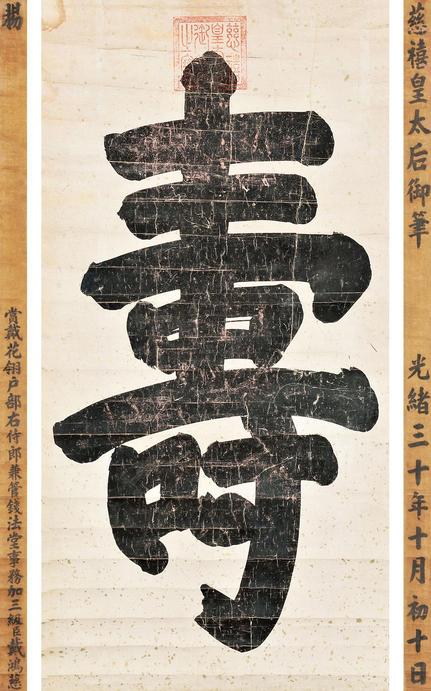 慈禧皇太后御筆
光緒三十年十月初十日
壽
賜
賞戴花翎户部右侍郎兼管錢法堂事務加三級臣戴鴻慈